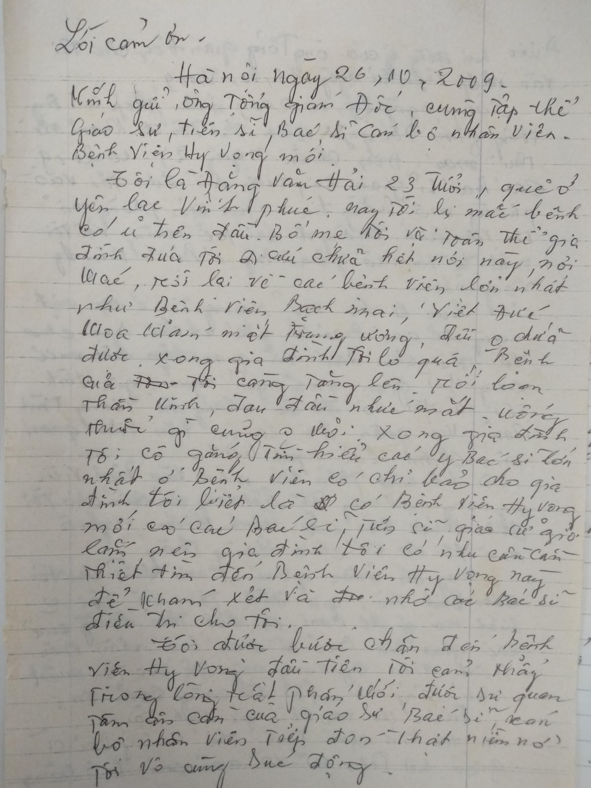 Lời cảm ơn.
Hà nội ngày 26, 10, 2009.
Kính gửi, ông Tổng giám Đốc, cùng Tập thể
Giáo sư, tiến sĩ, Bác sĩ Cán bộ nhân viên.
Bệnh Viện Hy Vọng mới
Tôi là Đặng Văn Hải 23 Tuổi, quê ở
Yên lạc Vĩnh phúc. nay Tôi bị mắc bệnh
có u trên đầu. Bố mẹ Tôi và Toàn thể gia
đình đưa Tôi đi cứu chữa hết nơi này, nơi
khác, rồi lại về các bệnh viện lớn nhất
như Bệnh viện Bạch mai, Việt Đức
khoa khám mắt Trung ương, đều o chữa
được. xong gia đình Tôi lo quá, Bệnh
của Tôi càng Tăng lên. rối loạn
Thần kinh, đau đầu nhức mắt. uống
thuốc gì cũng o khỏi. xong gia đình
Tôi cố gắng Tìm hiểu các y Bác sĩ lớn
nhất ở Bệnh viện có chỉ bảo cho gia
đình tôi biết là có Bệnh viện Hy vọng
mới có các Bác sĩ, Tiến sĩ giáo sư giỏi
lắm nên gia đình tôi có nhu cầu cần
Thiết tìm đến Bệnh viện Hy Vọng này
để khám xét và nhờ các Bác sĩ
điều trị cho tôi.
Tôi được bước chân đến Bệnh
viện Hy Vọng đầu tiên Tôi cảm thấy
Trong lòng rất phấn khởi được sự quan
Tâm ân cần của giáo sư Bác sĩ, cán
bộ nhân viên Tiếp đón Thật niềm nở
Tôi vô cùng xúc động.